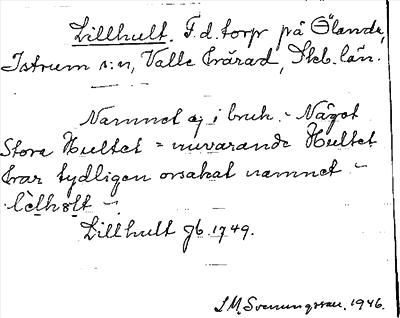 Lillhult. F.d. torp på Ölanda,
Istrum s:n, Valle härad, Skb. län.
Namnet ej i bruk. - Något
Stora Hultet = nuvarande Hultet
har tydligen orsakat namnet -
lèlhølt -.
Lillhult Jb. 1749.
I.M. Svenungsson. 1946.